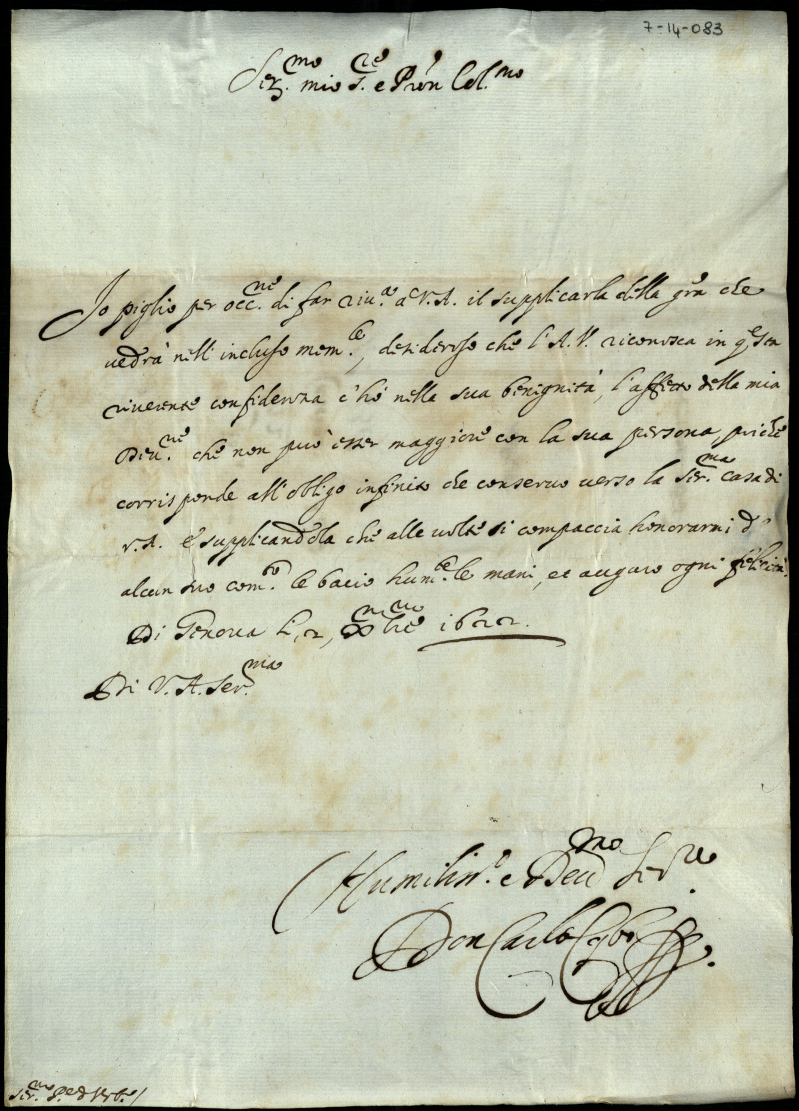 7-14-083
Ser.mo mio S.re e P'ron Col.mo
Io piglio per occ.ne di far riu.a a V.A. il supplicarla della gr'a che
uedrà nell' incluso mem.le, desideroso che l'A.V. riconosca in q'esta
riuerente confidenza c'hò nella sua benignità, l'affetto della mia
Deu.ne che non può esser maggiore con la sua persona, poiche
corrisponde all' obligo infinito che conseruo uerso la Ser.ma casa di
V.A. e supplicandola che alle uolte si compiaccia honorarmi d'
alcun suo com.o le bacio hum.te le mani, et auguro ogni felicità.
Di Genoua li, 2, Xbre 1622.
Di V.A. Ser.ma
Humiliss.o e Deu.mo Ser.re
Don Carlo Cybo
Ser.mo P.e d'Urb.o/